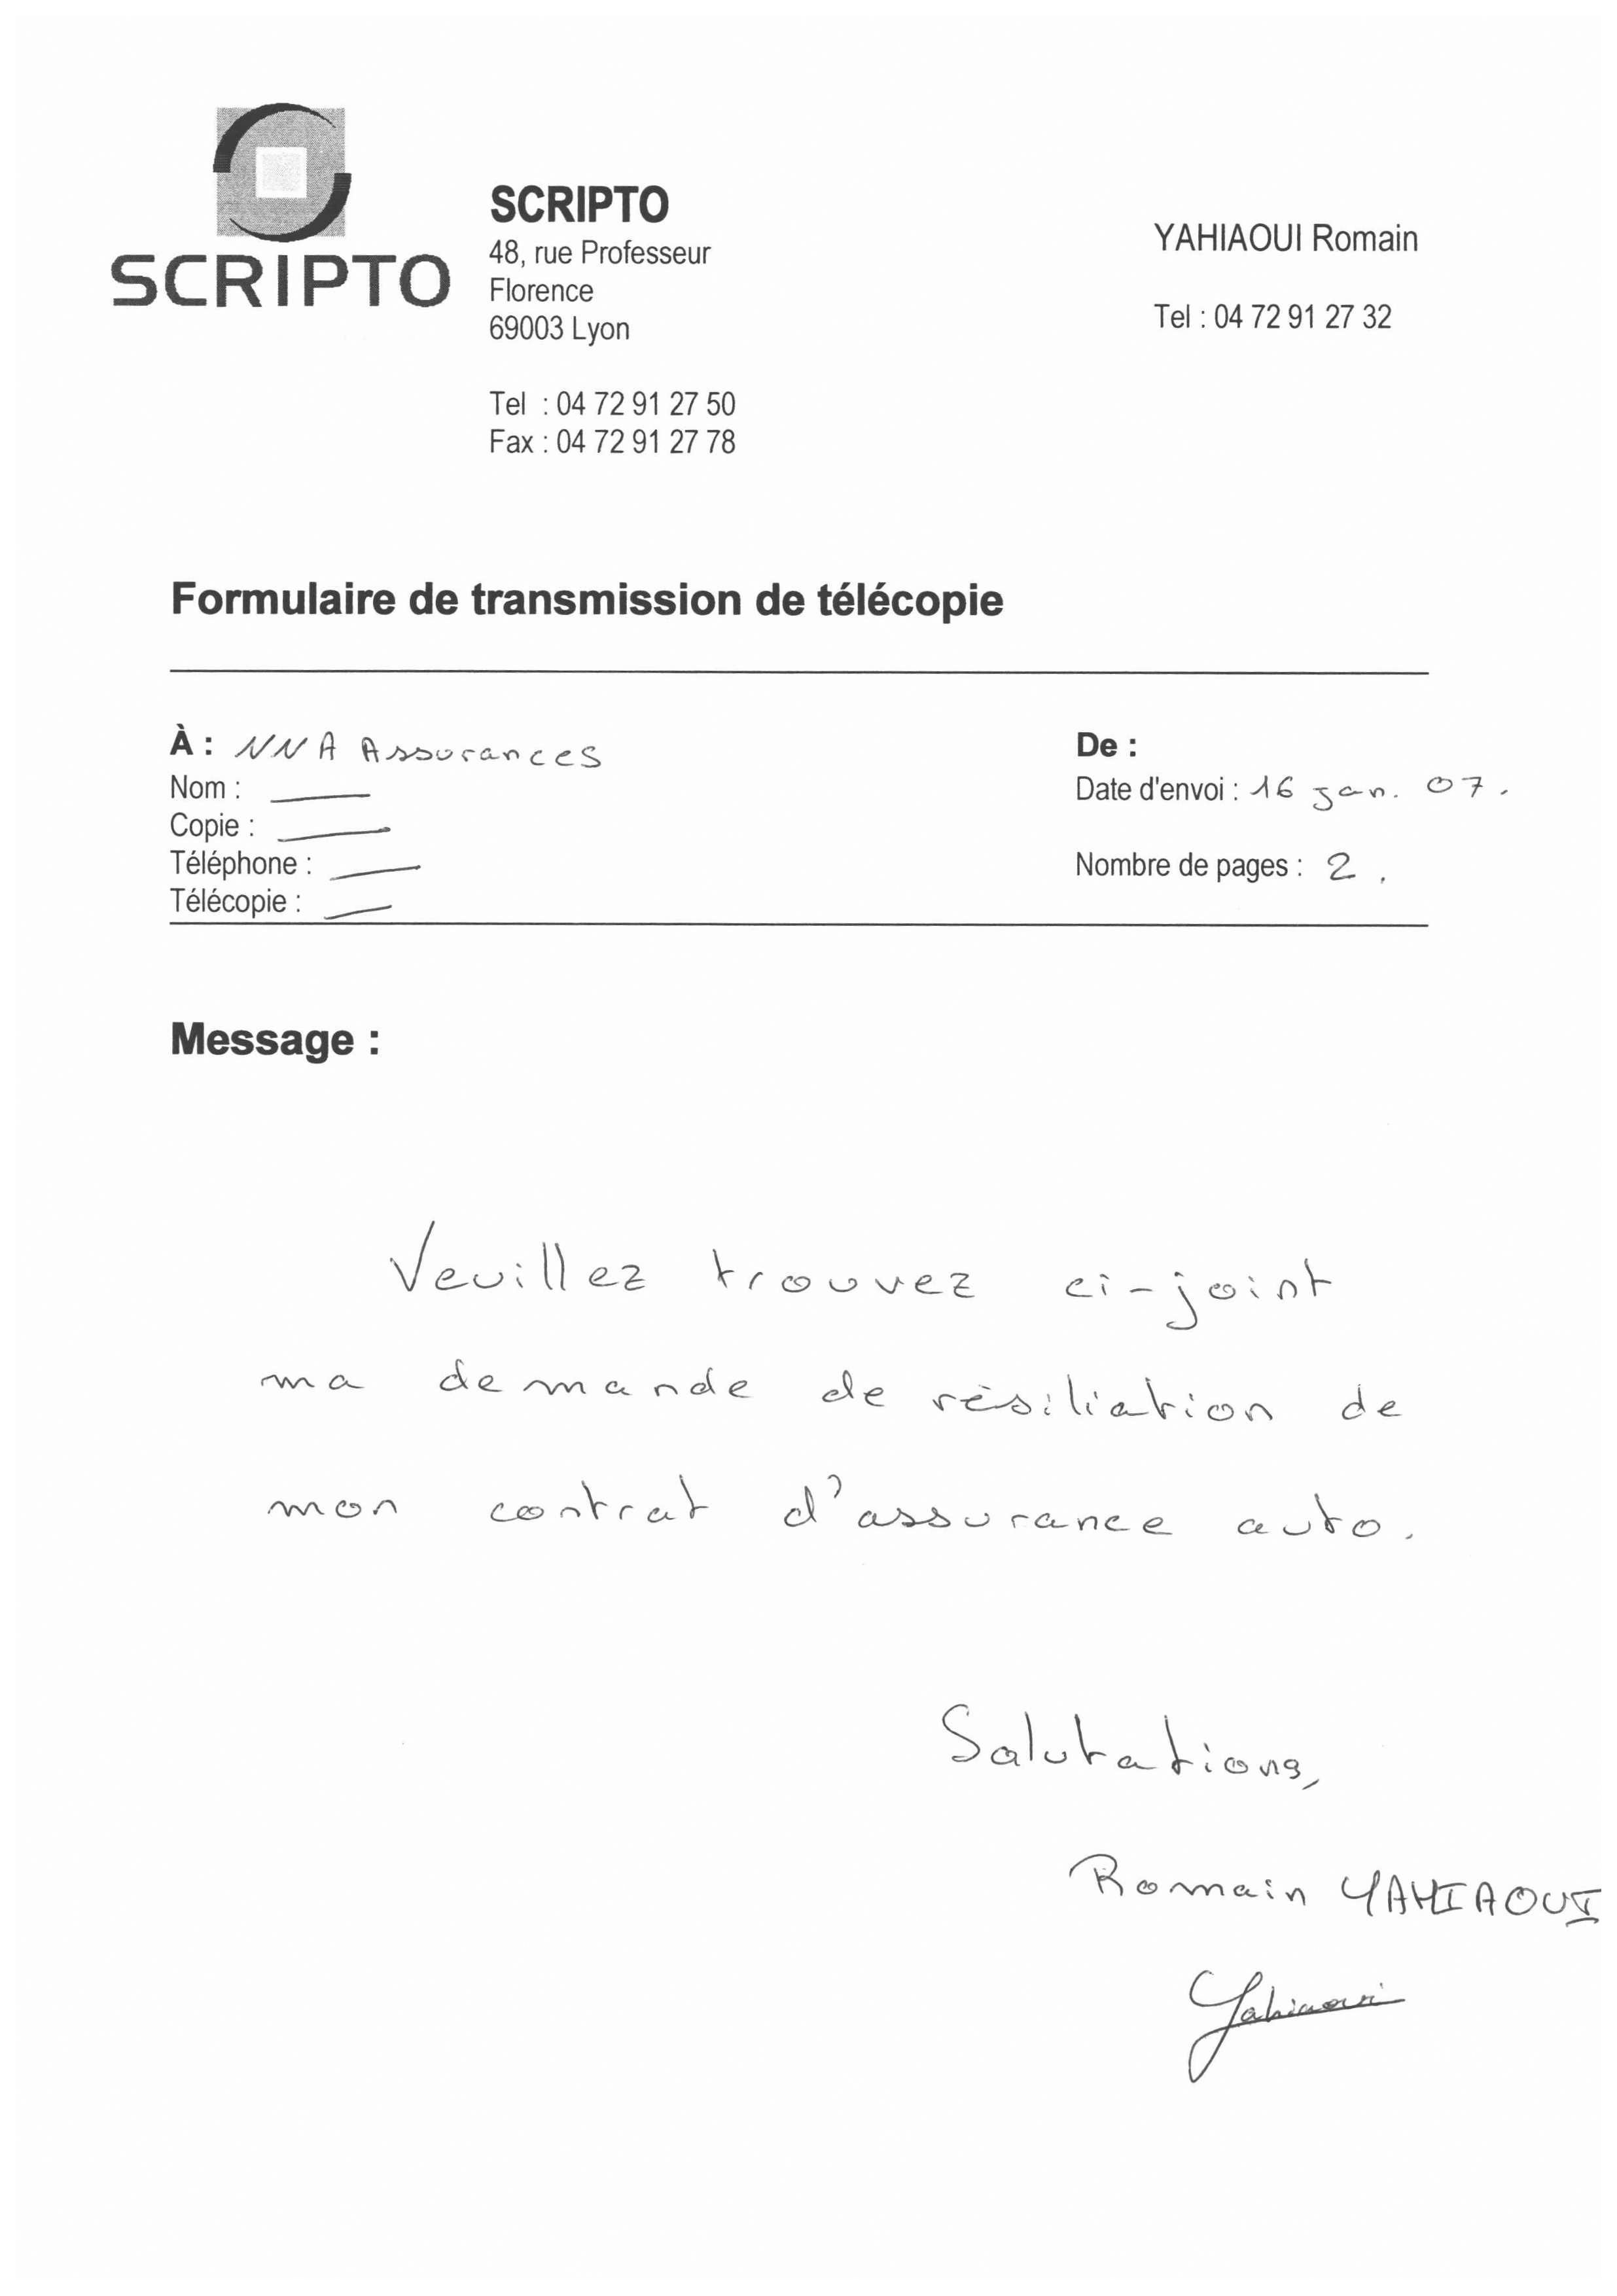 SCRIPTO
SCRIPTO
48, rue Professeur
Florence
69003 Lyon
Tel : 04 72 91 27 50
Fax : 04 72 91 27 78
YAHIAOUI Romain
Tel : 04 72 91 27 32
Formulaire de transmission de télécopie
À : NNA Assurances
Nom :
Copie :
Téléphone :
Télécopie :
De :
Date d'envoi : 16 jan. 07.
Nombre de pages : 2.
Message :
Veuillez trouvez ci-joint
ma demande de résiliation de
mon contrat d'assurance auto.
Salutations,
Romain YAHIAOUI
Yahiaoui